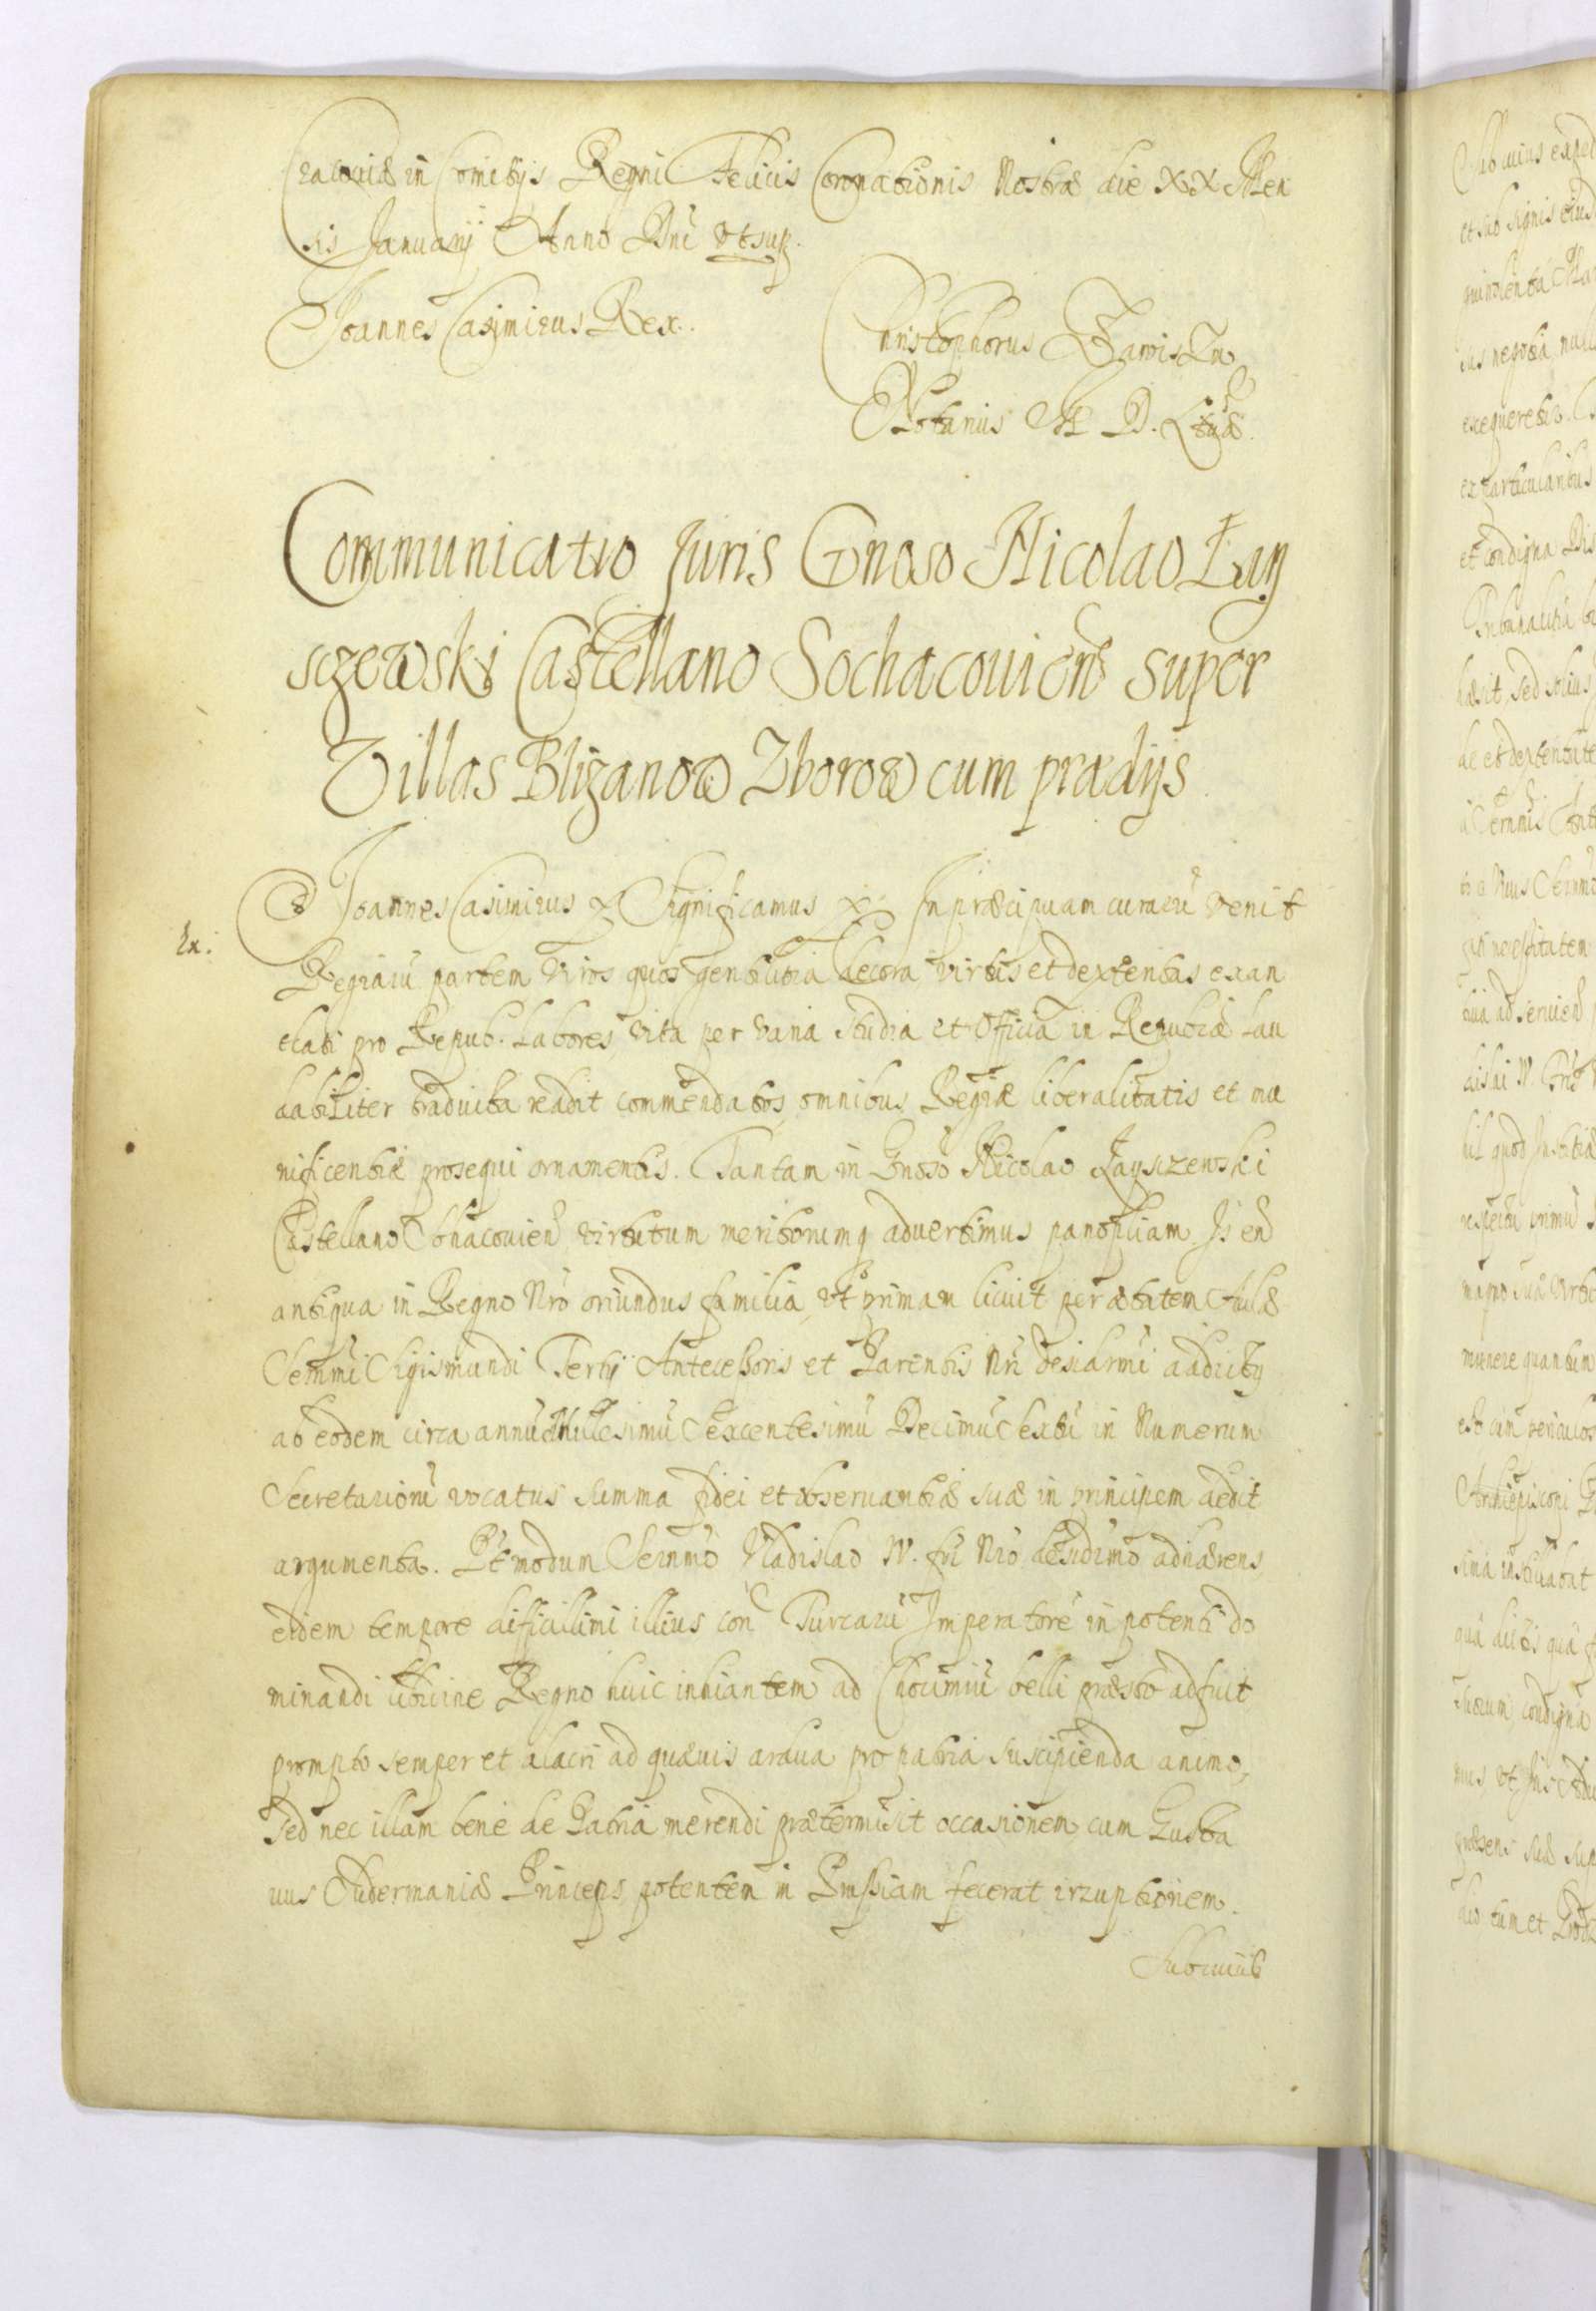 Cracouiæ in Comitijs Regni Felicis Coronationis Nostræ die XX Men
sis Januarij Anno Dni vtsup.
Joannes Casimirus Rex.
Christophorus
Notarius M D. Ltuæ.
Communicatio Juris Gnoso Nicolao Łay
sczewski Castellano Sochacouien super
Villas Blizanow Zborow cum prædijs
Ex.
Joannes Casimirus Significamus In præcipuam curarũ venit
Regiarũ partem Viros quos gentilitia decora virtus et dexteritas exan
clati pro Repub. labores vita per varia studia et Officia in Republica lau
dabiliter traducta reddit commendatos omnibus Regiæ liberalitatis et mu
nificentiæ prosequi ornamentis. Tantam in Gnoso Nicolao Łaysczewski
Castellano Sochacouien virtutum meritorumq aduertimus panopliam. Is en
antiqua in Regno Nro oriundus familia, vt primam licuit per ætatem Aulæ
Sermi Sigismundi Tertij Antecessoris et Parentis Nri desiadrmi addictq
ab eodem circa annũ Millesimũ Sexcentesimũ Decimũ Sextũ in Numerum
Secretariorũ vocatus summa fidei et obseruantiæ suæ in principem dedit
argumenta. Ptmodum Serenmo Vladislao IV. fri Nro adhærens
eidem tempore difficilimi illius con Turcarũ Imperatorẽ in potenti do
minandi libidine Regno huic inhiantem ad Chocimũ belli præsto adfuit
prompto semper et alacri ad quæuis ardua pro patria suscipienda animo,
Sed nec illam bene de Patria merendi prætermisit occasionem cum Gusta
uus Sudermaniæ Princeps potentem in Prussiam fecerat irruptionem.
Sub cuius